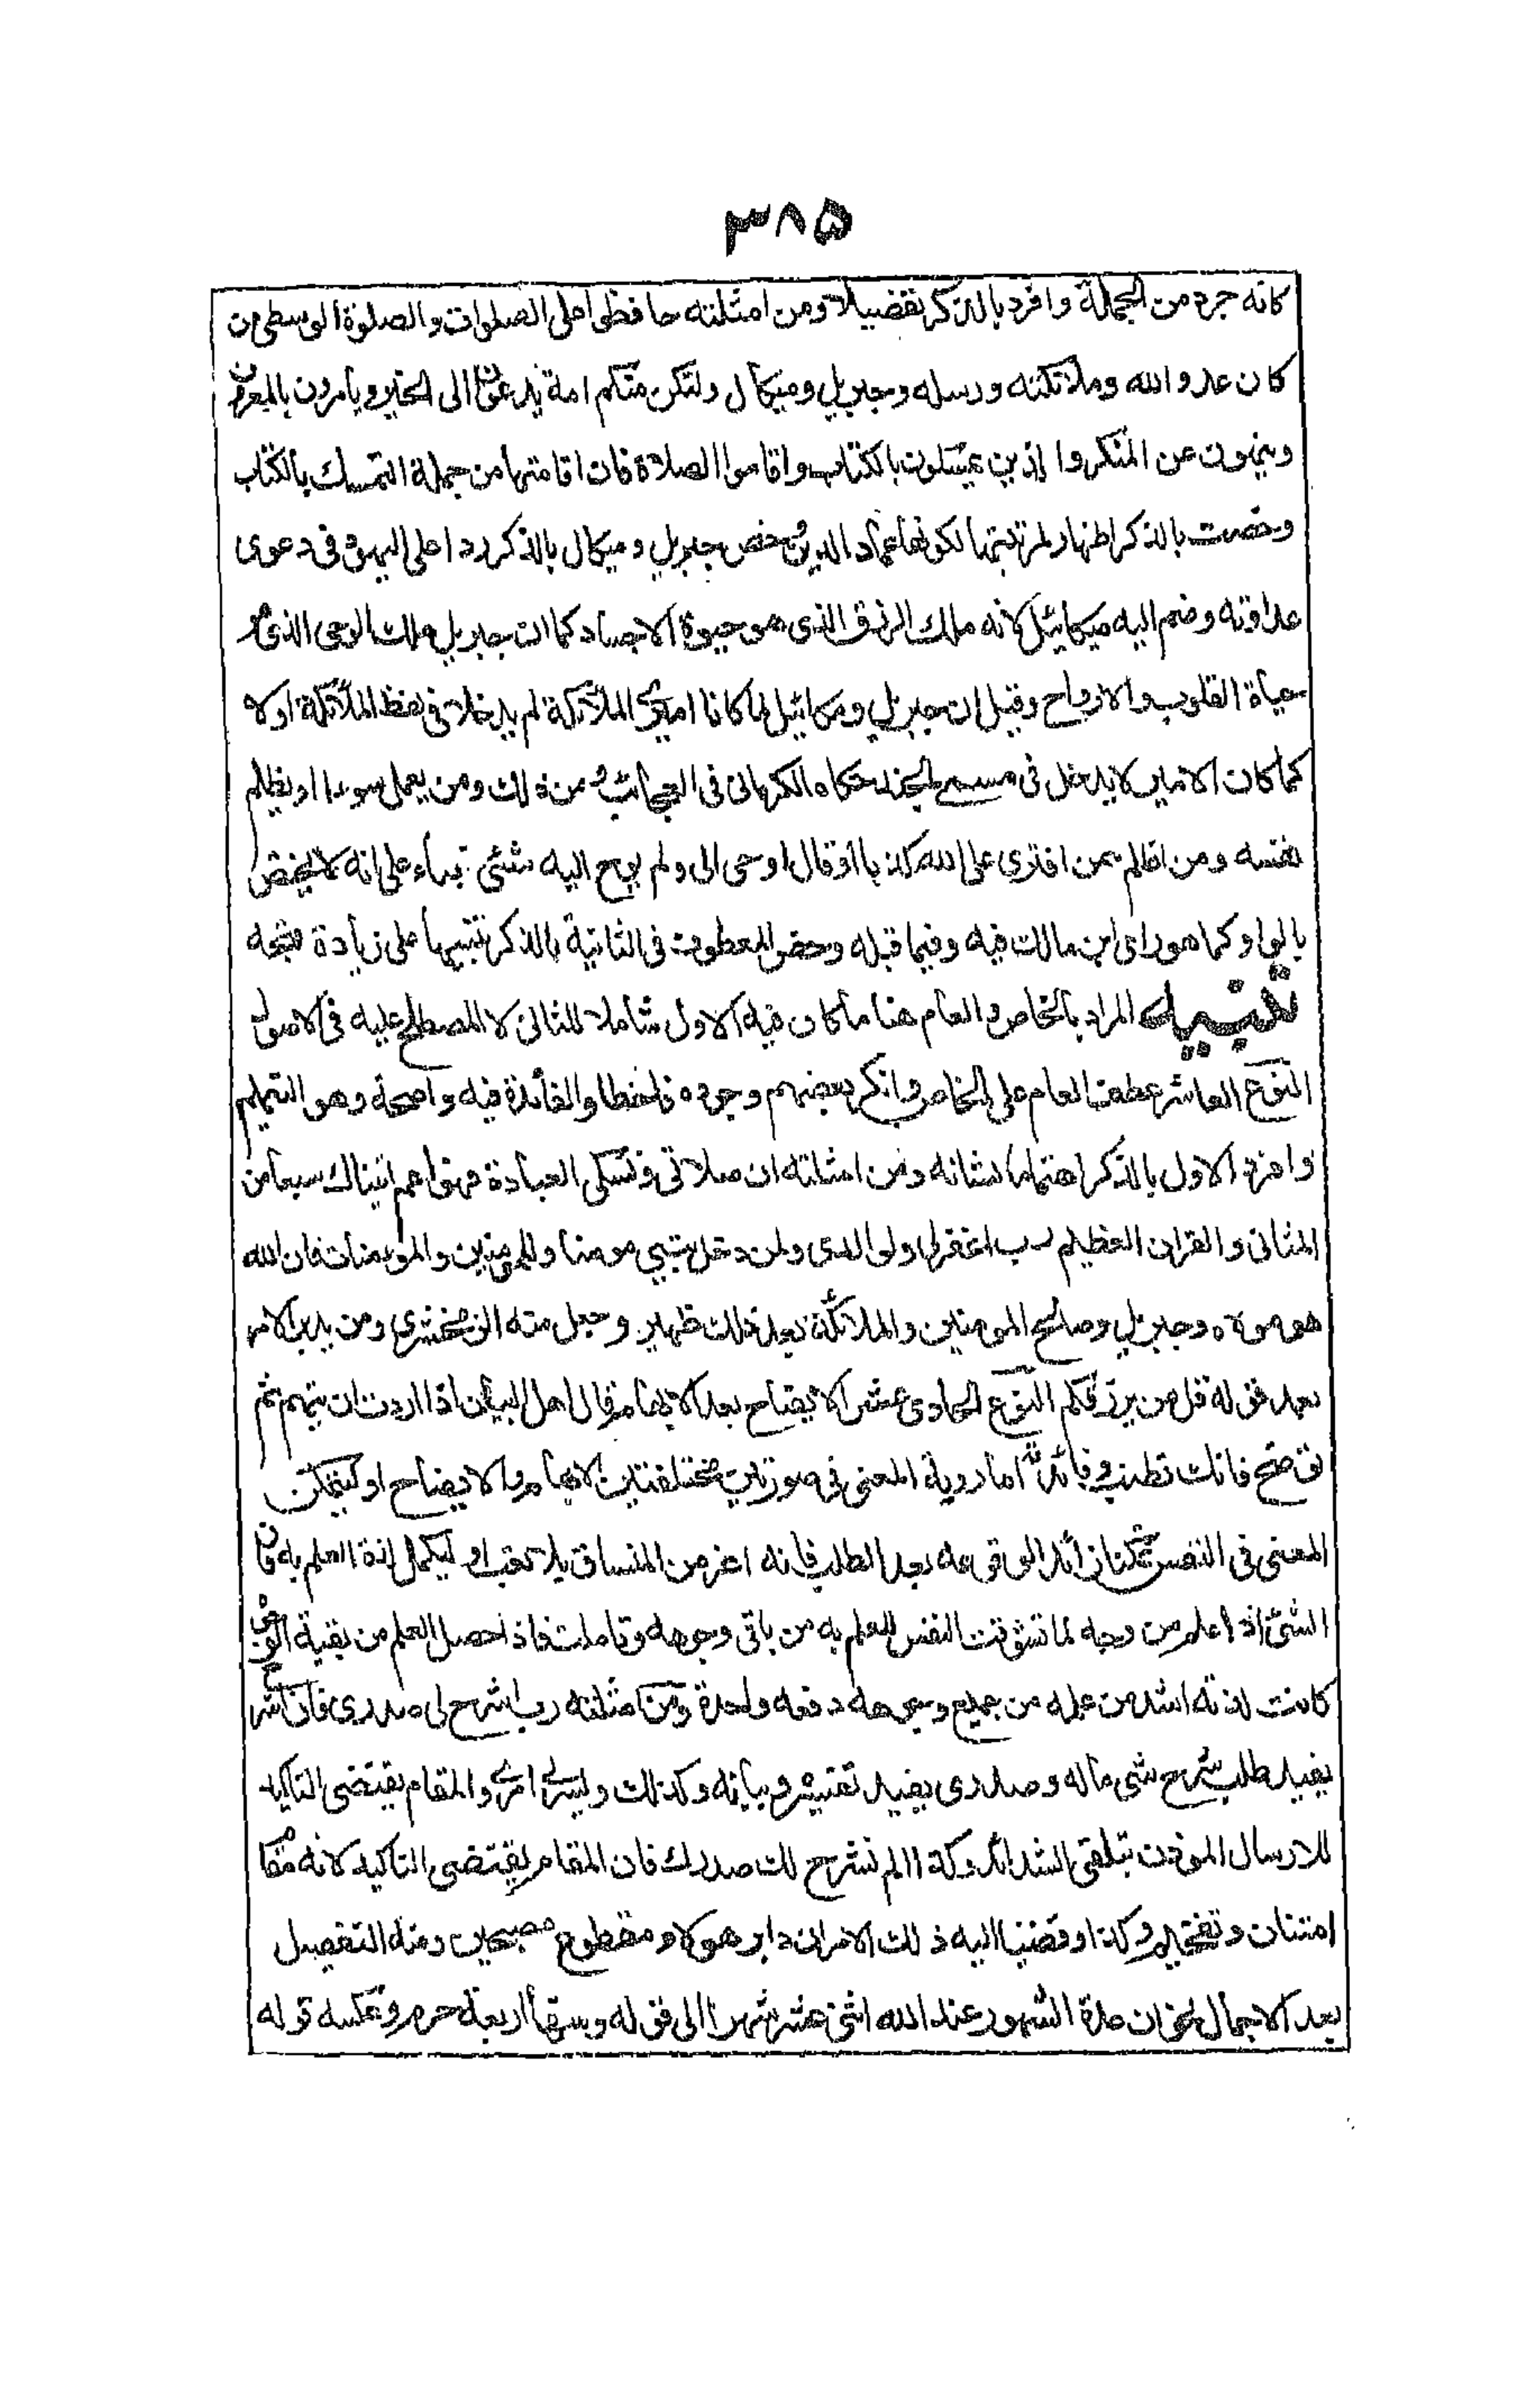 ۳۸۵
كانه جرد من الجملة وافرد بالذكر تفضيلا ومن امثلته حافظوا على الصلوات والصلوة الوسطى من
كان عدوا لله وملائكته ورسله وجبريل وميكال ولتكن منكم امة يدعون الى الخير ويأمرون بالمعروف
وينهون عن المنكر والذين يمسكون بالكتاب واقاموا الصلاة فان اقامتها من جملة التمسك بالكتاب
وخصت بالذكر اظهارا لمرتبتها لكونها عماد الدين وخص جبريل وميكال بالذكر ردا على اليهود فى دعوى
عداوته وضم اليه ميكائيل لانه ملك الرزق الذى هو حيوة الاجساد كما ان جبريل ملك الوحى الذى هو
حياة القلوب والارواح وقيل ان جبريل وميكائيل لما كانا اميرى الملائكة لم يدخلا فى لفظ الملائكة اولا
كما كان الامير لا يدخل فى مسمى الجند حكاه الكرمانى فى العجائب ومن ذلك ومن يعمل سوءا او يظلم
نفسه ومن اظلم ممن افترى على الله كذبا او قال اوحى الى ولم يوح اليه شئ بناء على انه لا يختص
بالواو كما هو راى ابن مالك فيه وفيما قبله وخص المعطوف فى الثانية بالذكر تنبيها على زيادة قبحه
تنبيه المراد بالخاص والعام هنا ما كان فيه الاول شاملا للثانى لا المصطلح عليه فى الاصول
النوع العاشر عطف العام على الخاص وانكر بعضهم وجوده فاخطا والفائدة فيه واضحة وهو التعميم
وافرد الاول بالذكر اهتماما بشانه ومن امثلته ان صلاتى ونسكى العبادة فهو اعم اتيناك سبعا من
المثانى والقران العظيم رب اغفرلى ولوالدى ولمن دخل بيتى مومنا وللمومنين والمومنات فان الله
هو مولاه وجبريل وصالح المومنين والملائكة بعد ذلك ظهير وجعل منه الزمخشرى ومن يدبر الامر
بعد قوله قل من يرزقكم النوع الحادى عشر الايضاح بعد الابهام قال اهل البيان اذا اردت ان تبهم ثم
توضح فانك تطنب وفائدته اما روية المعنى فى صورتين مختلفتين الابهام والايضاح او ليتمكن
المعنى فى النفس تمكنا زائدا لوقوعه بعد الطلب فانه اعز من المنساق بلا تعب او ليكمل لذة العلم به فان
الشئ اذا علم من وجه ما تشوقت النفس للعلم به من باقى وجوهه وتاملت فاذا حصل العلم من بقية الوجوه
كانت لذته اشد من علمه من جميع وجوهه دفعة واحدة ومن امثلته رب اشرح لى صدرى فان اشرح
يفيد طلب شرح شى ماله وصدرى يفيد تفسيره وبيانه وكذلك ويسرلى امرى والمقام يقتضى التاكيد
للارسال الموذن بتلقى الشدائد وكذا الم نشرح لك صدرك فان المقام يقتضى التاكيد لانه مقام
امتنان وتفخيم وكذا وقضينا اليه ذلك الامر ان دابر هولاء مقطوع مصبحين ومنه التفصيل
بعد الاجمال نحو ان عدة الشهور عند الله اثنى عشر شهرا الى قوله ومنها اربعة حرم وعكسه قوله